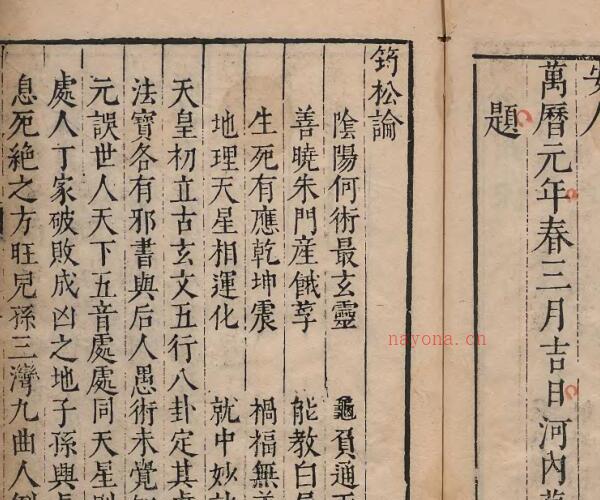 安人
萬曆元年春三月吉日河內
題
筠松論
陰陽何術最玄靈 龜負通
善曉朱門産餓莩 能教白
生死有應乾坤震 禍福無
地理天星相運化 就中妙
天皇初立古玄文五行八卦定其
法寶各有邪書與后人愚術未覺
元誤世人天下五音處處同天星
處人丁家破敗成凶之地子孫興
息死絕之方旺兒孫三灣九曲人
nayona.cn